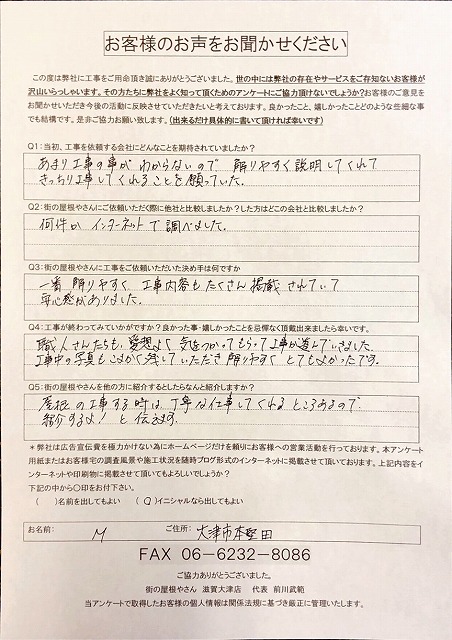 お客様のお声をお聞かせください
この度は弊社に工事をご用命頂き誠にありがとうございました。世の中には弊社の存在やサービスをご存知ないお客様が
沢山いらっしゃいます。その方たちに弊社をよく知って頂くためのアンケートにご協力頂けないでしょうか?お客様のご意見を
お聞かせいただき今後の活動に反映させていただきたいと考えております。良かったこと、嬉しかったことどのような些細な事
でも結構です。是非ご協力お願い致します。(出来るだけ具体的に書いて頂ければ幸いです)
Q1:当初、工事を依頼する会社にどんなことを期待されていましたか?
あまり工事の事がわからないので 解りやすく説明してくれて
きっちり工事してくれることを願っていた。
Q2:街の屋根やさんにご依頼いただく際に他社と比較しましたか?した方はどこの会社と比較しましたか?
何件かインターネットで調べました。
Q3:街の屋根やさんに工事をご依頼いただいた決め手は何ですか
一番解りやすく、工事内容もたくさん掲載されていて
安心感がありました。
Q4:工事が終わってみていかがですか?良かった事・嬉しかったことを忌憚なく頂戴出来ましたら幸いです。
職人さんたちも、愛想よく気をつかってもらって工事が進んでいきました。
工事中の写真もこまかく残していただき解りやすくとてもよかったです。
Q5:街の屋根やさんを他の方に紹介するとしたらなんと紹介しますか?
屋根の工事する時は、丁寧な仕事してくれるところあるので
紹介するよ!と伝えます。
*弊社は広告宣伝費を極力かけない為にホームページだけを頼りにお客様への営業活動を行っております。本アンケート
用紙またはお客様宅の調査風景や施工状況を随時ブログ形式のインターネットに掲載させて頂いております。上記内容をイ
ンターネットや印刷物に掲載させて頂いてもよろしいでしょうか?
下記の中から〇印をお付下さい。
( )名前を出してもよい ( 〇 )イニシャルなら出してもよい
お名前: M ご住所: 大津市本堅田
FAX 06-6232-8086
ご協力ありがとうございました。
街の屋根やさん 滋賀大津店 代表 前川武範
当アンケートで取得したお客様の個人情報は関係法規に基づき厳正に管理いたします。